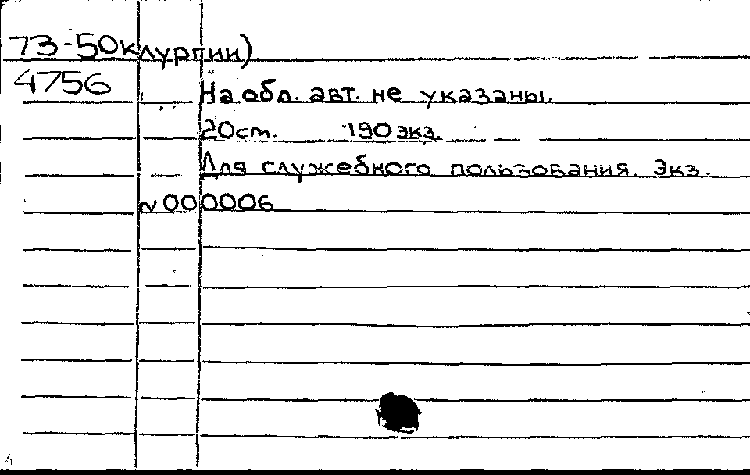 73-50клургии)
4756
На обл. авт. не указаны.
20см. 190 экз.
Для служебного пользования. Экз.
№000006